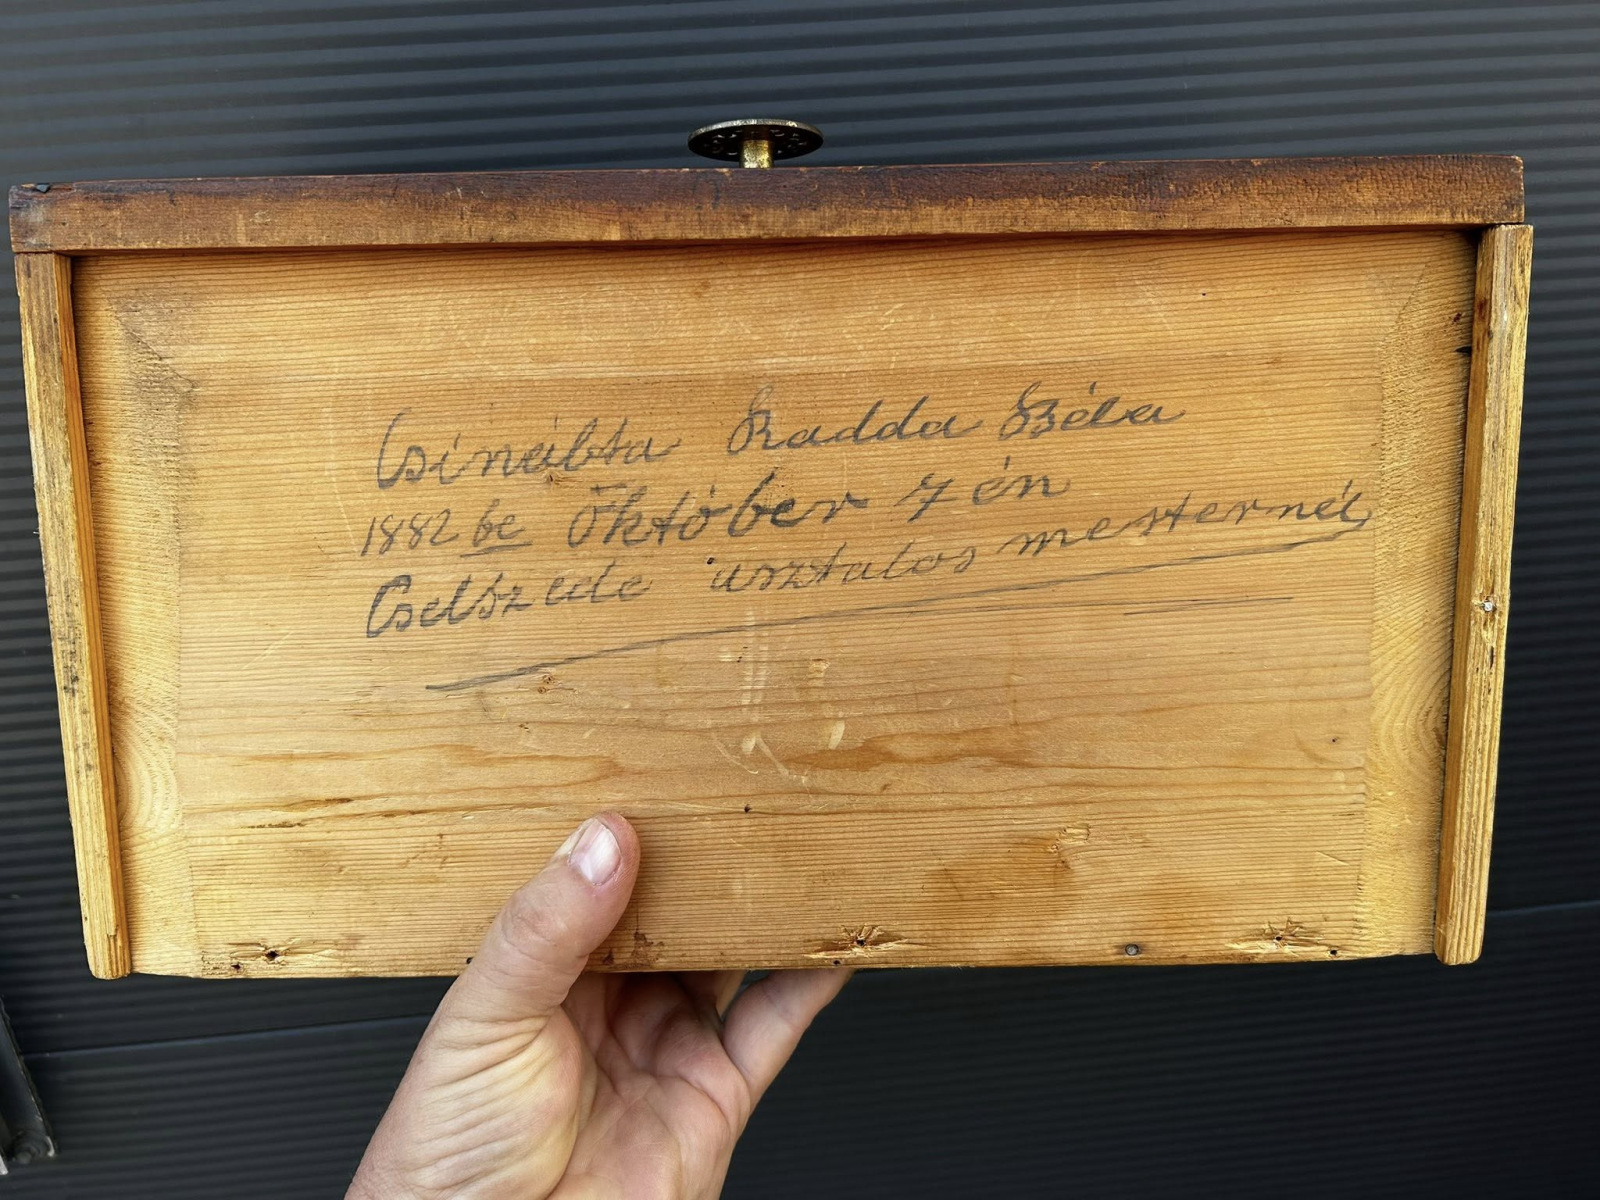 Csinálta Radda Béla
1882 be Október 7 én
Cselszede asztalos mesternél